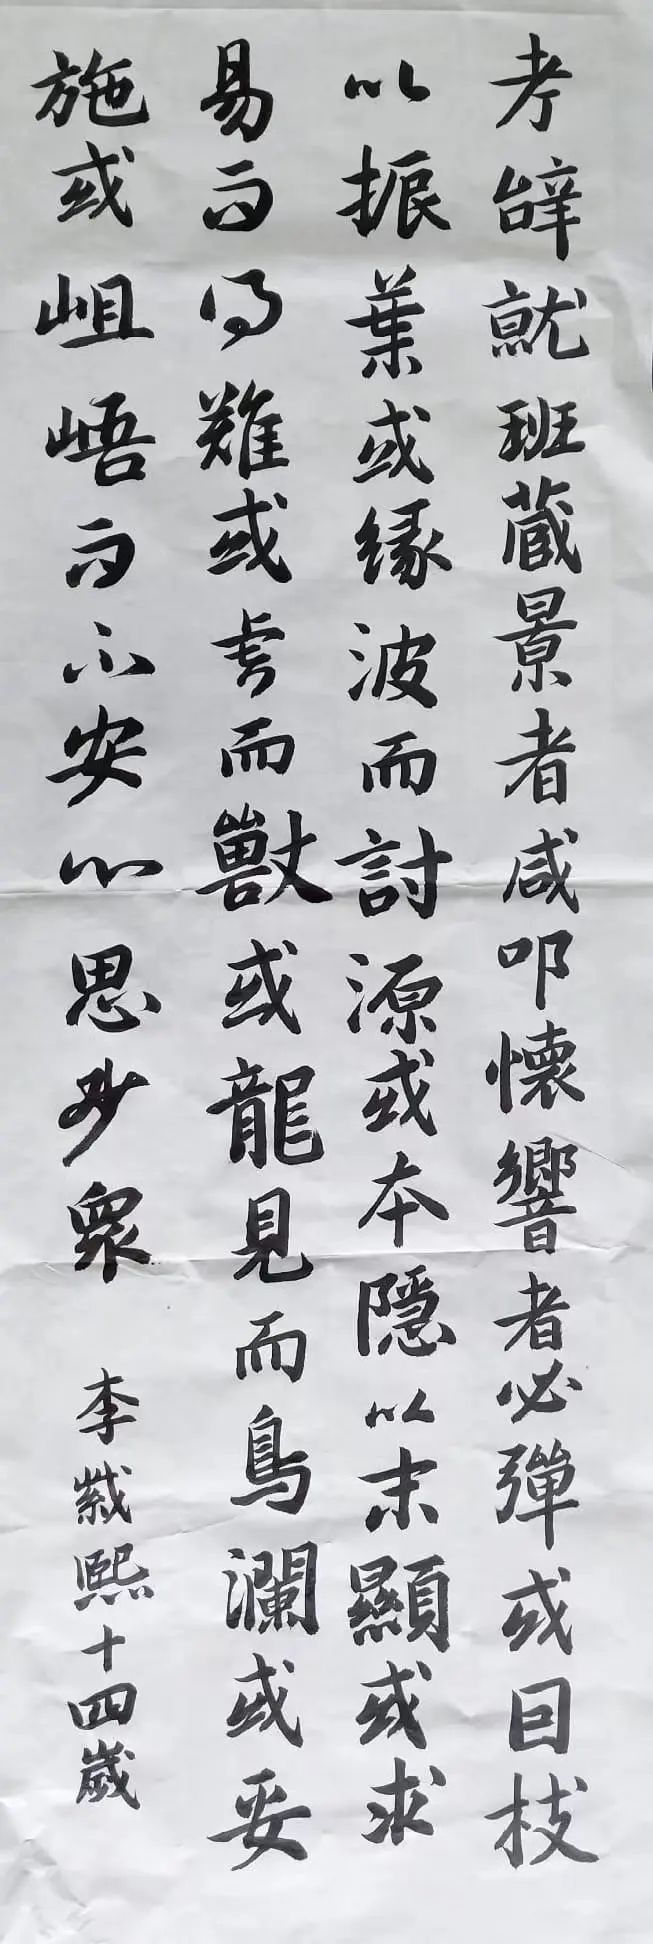 考辝就班藏景者咸叩懷響者必彈或因枝
以振葉或緣波而討源或本隱以末顯或求
易而得難或虎而獸或龍見而鳥瀾或妥
施或岨峿而不安心思妙眾
李熙十四歲